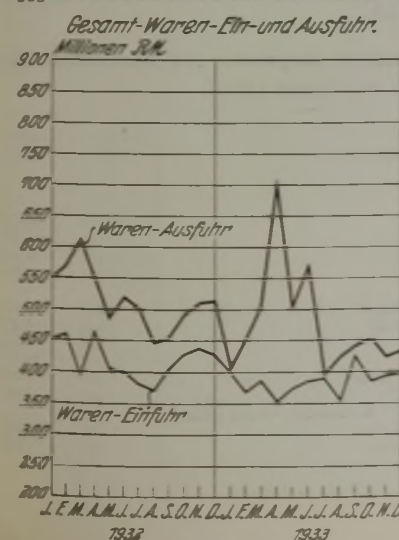 Gesamt-Waren-Ein-und Ausfuhr.
Millionen RM.
900
850
800
750
700
650
600
550
500
450
400
350
300
250
200
Waren-Ausfuhr
Waren-Einfuhr
J. F. M. A. M. J. J. A. S. O. N. D. J. F. M. A. M. J. J. A. S. O. N. D
1932 1933